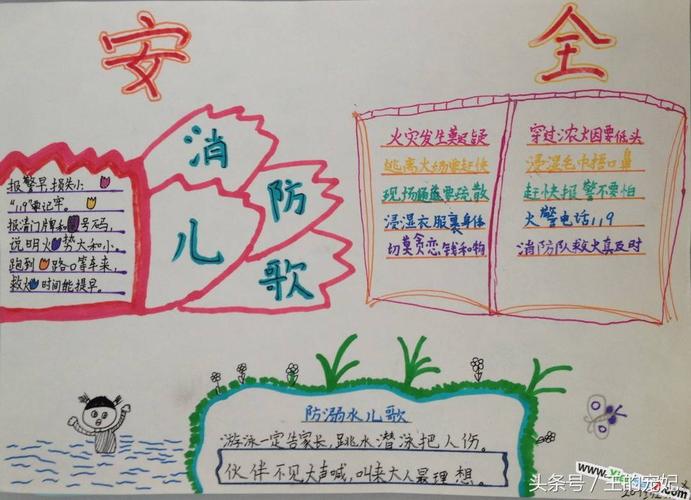 安 全
消 防
儿 歌
报警早,损失小。
“119”要记牢。
报清门牌和号码,
说明火势大和小,
跑到路口等车来,
救火时间能提早。
火灾发生莫迟疑
逃离火场要赶快
现场通道要疏散
浸湿衣服裹身体
切莫贪恋钱和物
穿过浓烟要低头
浸湿毛巾捂口鼻
赶快报警不要怕
火警电话119
消防队救火真及时
防溺水儿歌
游泳一定告家长,跳水潜泳把人伤。
伙伴不见大声喊,叫来大人最理想。
头条号/王的宠妃